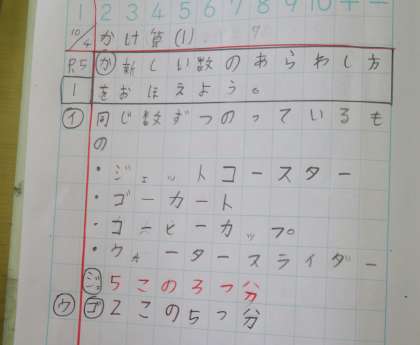 1 2 3 4 5 6 7 8 9 10 + -
10/4 かけ算(1) 7
P.5 か 新しい数のあらわし方
1 をおぼえよう。
イ 同じ数ずつのっているも
の
・ジェットコースター
・ゴーカート
・コーヒーカップ
・ウォータースライダー
ジ 5この3つ分
ウ ゴ 2この5つ分